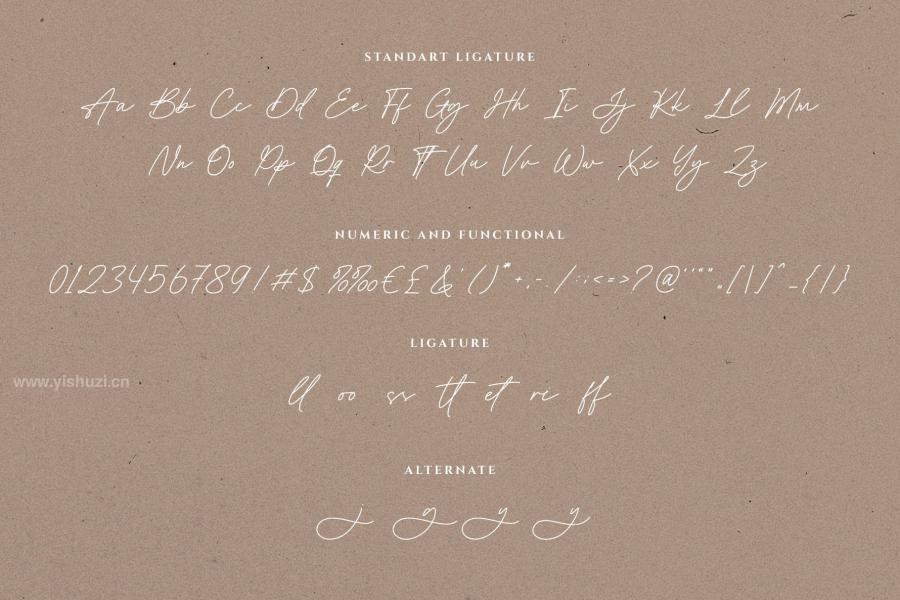 STANDART LIGATURE
Aa Bb Cc Dd Ee Ff Gg Hh Ii Jj Kk Ll Mm
Nn Oo Pp Qq Rr Tt Uu Vv Ww Xx Yy Zz
NUMERIC AND FUNCTIONAL
0123456789!#$%‰€£&'()*+,-./:;<=>?@‘’“”„[\]^_{|}
LIGATURE
www.yishuzi.cn
ll oo ss tt et re ff
ALTERNATE
j g y y